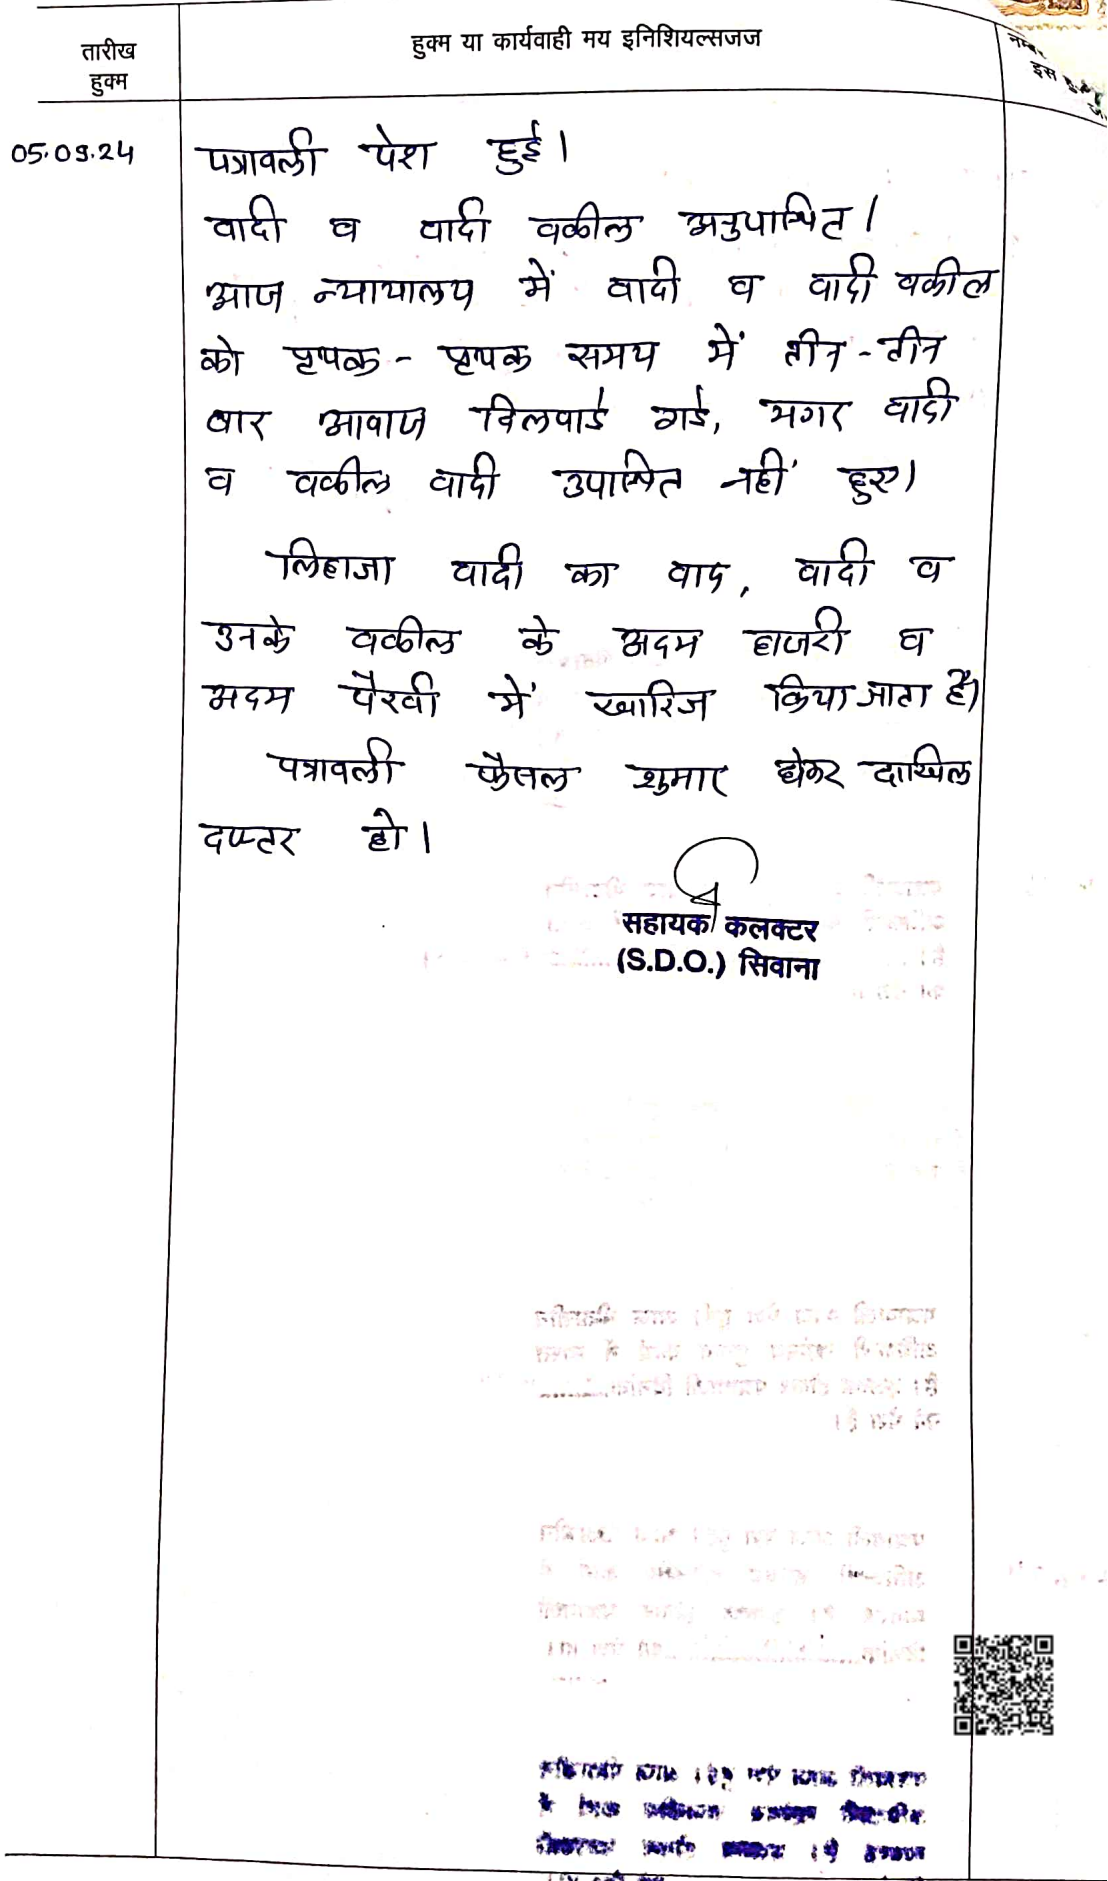 तारीख
हुक्म
हुक्म या कार्यवाही मय इनिशियल्सजज
इस
05.09.24
पत्रावली पेश हुई।
वादी व वादी वकील अनुपास्थित।
आज न्यायालय में वादी व वादी वकील
को पृथक - पृथक समय में तीन - तीन
बार आवाज दिलवाई गई, मगर वादी
व वकील वादी उपास्थित नहीं हुए।
लिहाजा वादी का वाद, वादी व
उनके वकील के अदम हाजरी व
अदम पैरवी में खारिज किया जाता है।
पत्रावली फैसल शुमार होकर दाखिल
दफ्तर हो।
सहायक कलक्टर
(S.D.O.) सिवाना